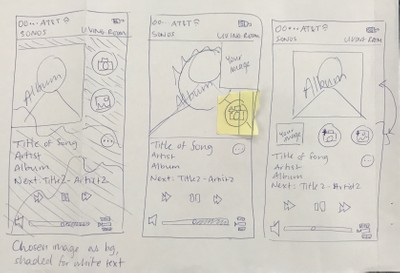 OO... AT&T
SONOS LIVING ROOM
Album
Title of Song
Artist
Album
Next: Title2 - Artist2
Chosen image as bg,
shaded for white text
OO... AT&T
SONOS LIVING ROOM
Your
image
Album
Title of Song
Artist
Album
Next: Title2 - Artist2
OO... AT&T
SONOS LIVING ROOM
Album
Your
image
Title of Song
Artist
Album
Next: Title2 - Artist2